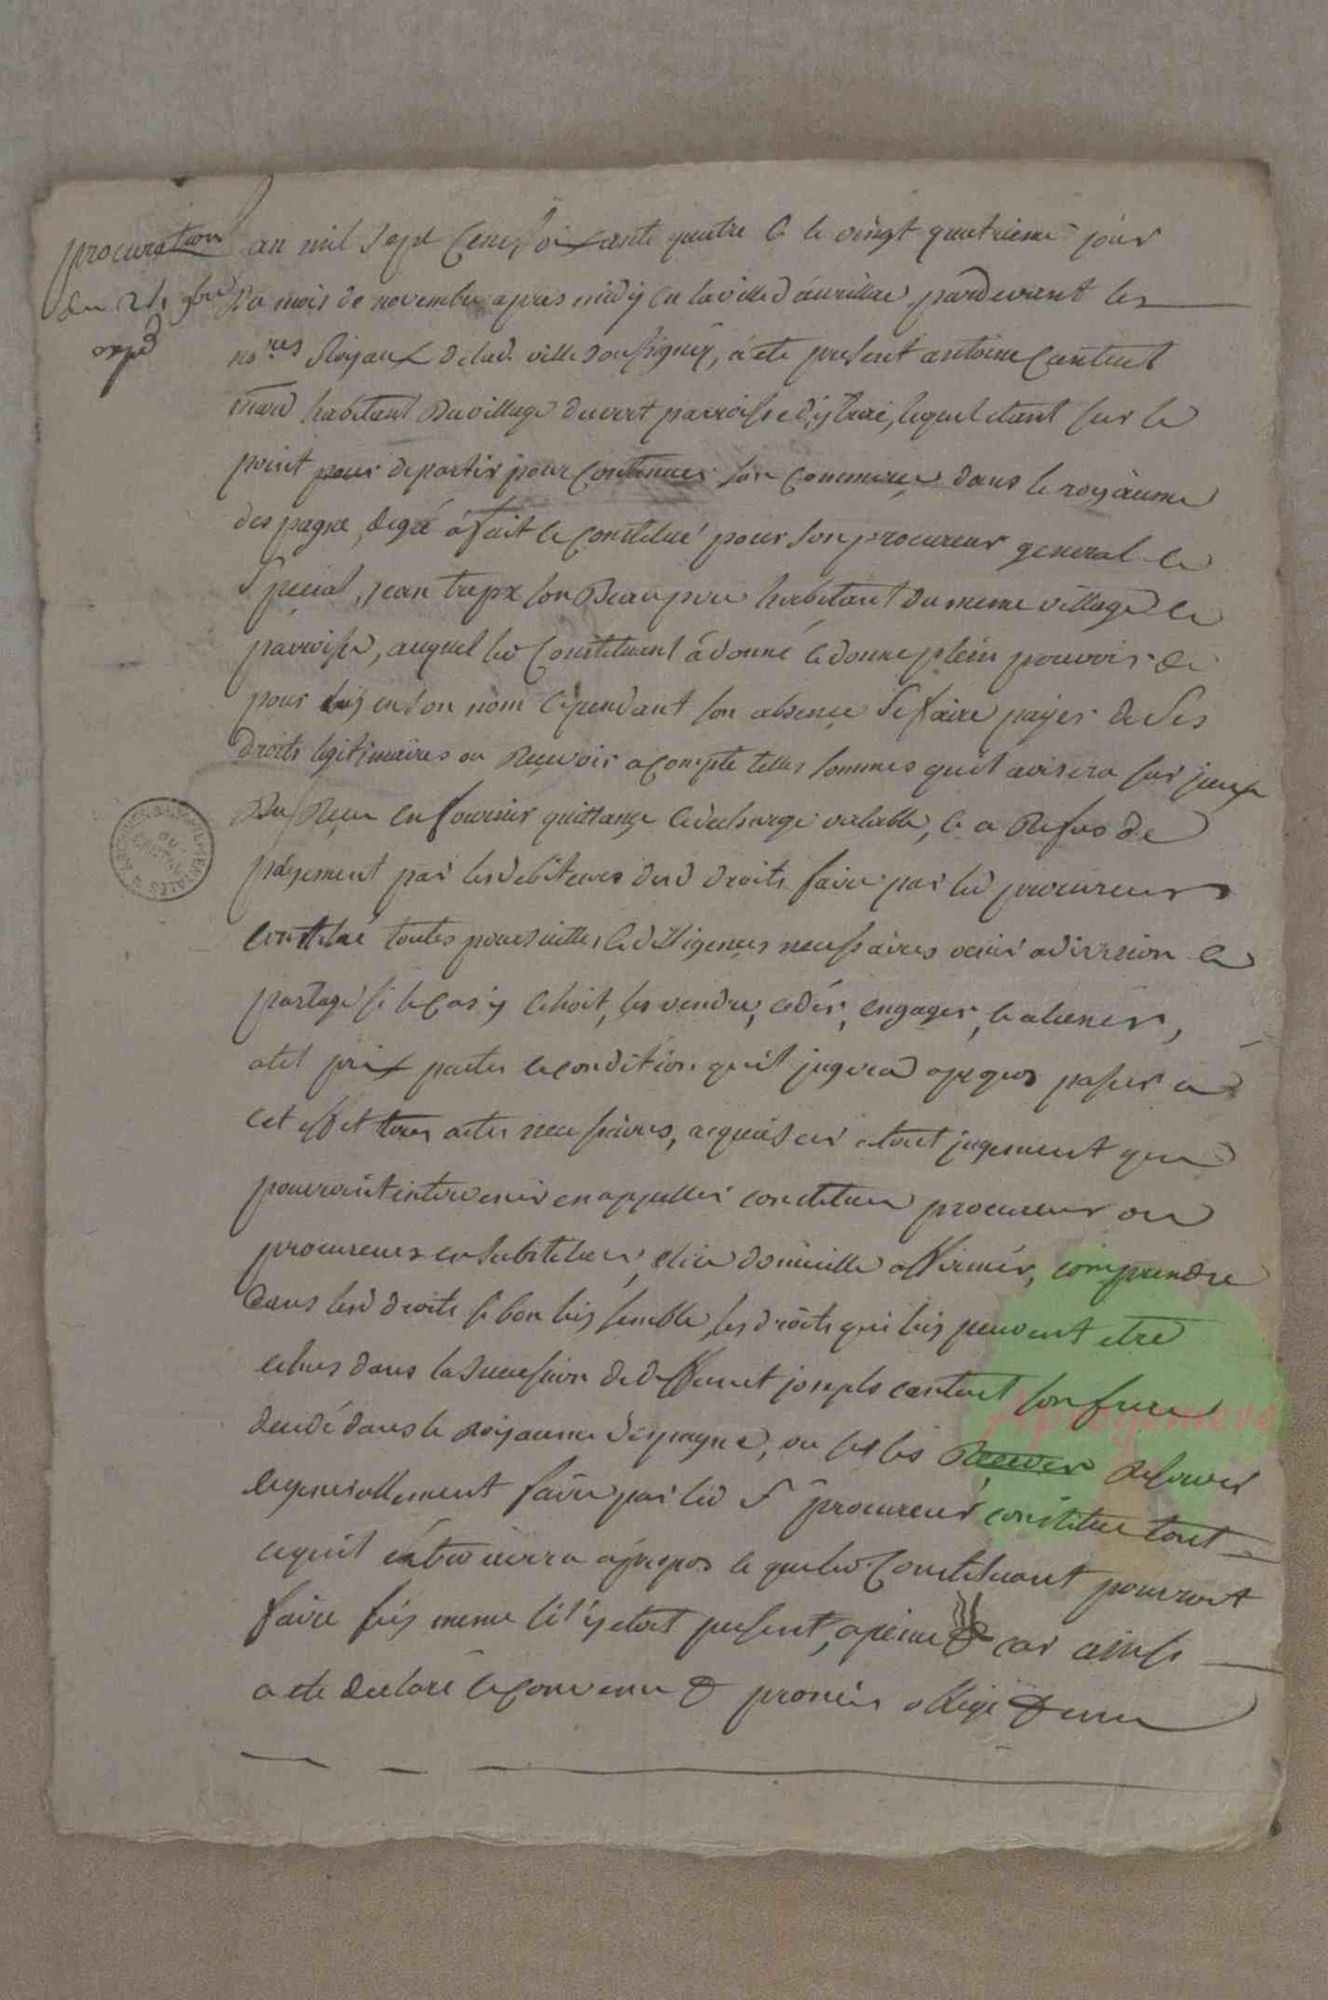 procuration
du 24 9bre
expd
an mil sept cens soixante quatre & le vingt quatrieme jour
du mois de novembre apres midy en la ville d'aurillac pardevant les
nores Royaux de lad. ville soussignés, a eté present antoine Cantuel
mard habitant du village du vert parroisse d'ytrac, lequel etant sur le
point pour de partir pour continuer son commerce dans le royaume
despagne, de gré a fait & constitué pour son procureur general &
special, jean trepx son Beaupere habitant du meme village &
parroisse, auquel led Constituant a donné & donne plein pouvoir de
pour luy en son nom & pendant son absence se faire payer de ses
droits legitimaires ou Recevoir a compte telles sommes quil avisera sur iceux
du Recu en fournir quittance & decharge valable, & a Refus de
payement par les debiteurs desd droits faire par led procureur
constitué toutes poursuittes & diligences necessaires venir a division &
partage si le cas y echoit, les vendre, ceder, engager, & aliener,
a tel prix pactes & condition quil jugera a propos passer a
cet effet tous actes necessaires, acquiescer a tout jugement que
pourroint intervenir en appeller constituer procureur ou
procureurs en substituer, elire domicille affirmer, comprendre
dans lesd droits si bon luy semble, les droits qui luy peuvent etre
echus dans la succession de deffunt joseph cantuel son frere
decedé dans le Royaume d'espagne, ou
& generallement faire par led Sr procureur constitué tout
ce quil trouvera a propos & que led Constituant pourroit
faire luy meme s'il y etoit present, a peine & car ainsi
a eté declaré & convenu & promis obligé &
AYROGENERE